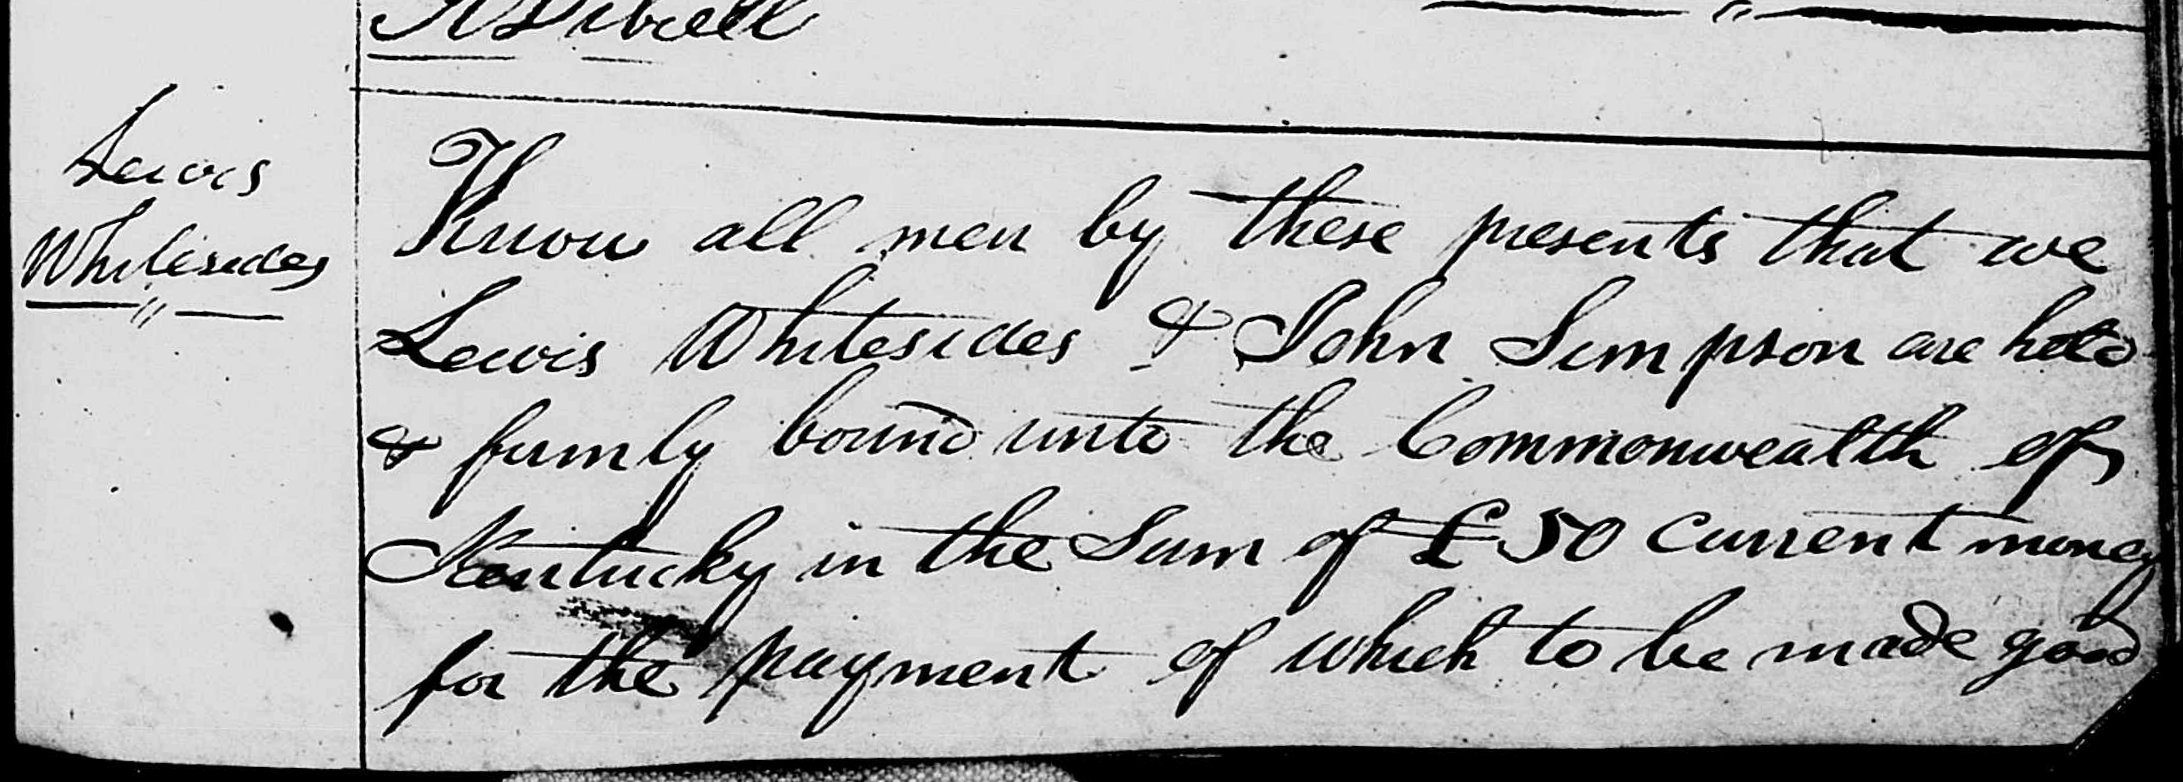 Lewis
Whitesides
Know all men by these presents that we
Lewis Whitesides & John Simpson are held
& firmly bound unto the Commonwealth of
Kentucky in the Sum of £50 Current money
for the payment of which to be made good